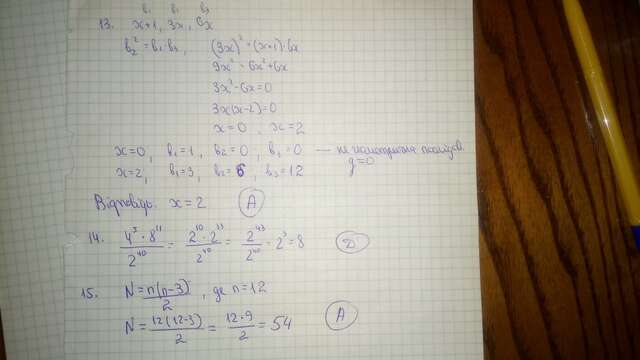 b₁ b₂ b₃
13. x+1, 3x, 6x
b₂² = b₁·b₃, (3x)² = (x+1)·6x
9x² = 6x²+6x
3x² - 6x = 0
3x(x-2) = 0
x=0, x=2
x=0, b₁=1, b₂=0, b₃=0 — не геометрична послідов. q=0
x=2, b₁=3, b₂=6, b₃=12
Відповідь: x=2 (А)
14. 4⁵·8¹¹/2⁴⁰ = 2¹⁰·2³³/2⁴⁰ = 2⁴³/2⁴⁰ = 2³ = 8 (Д)
15. N = n(n-3)/2, де n=12
N = 12(12-3)/2 = 12·9/2 = 54 (А)